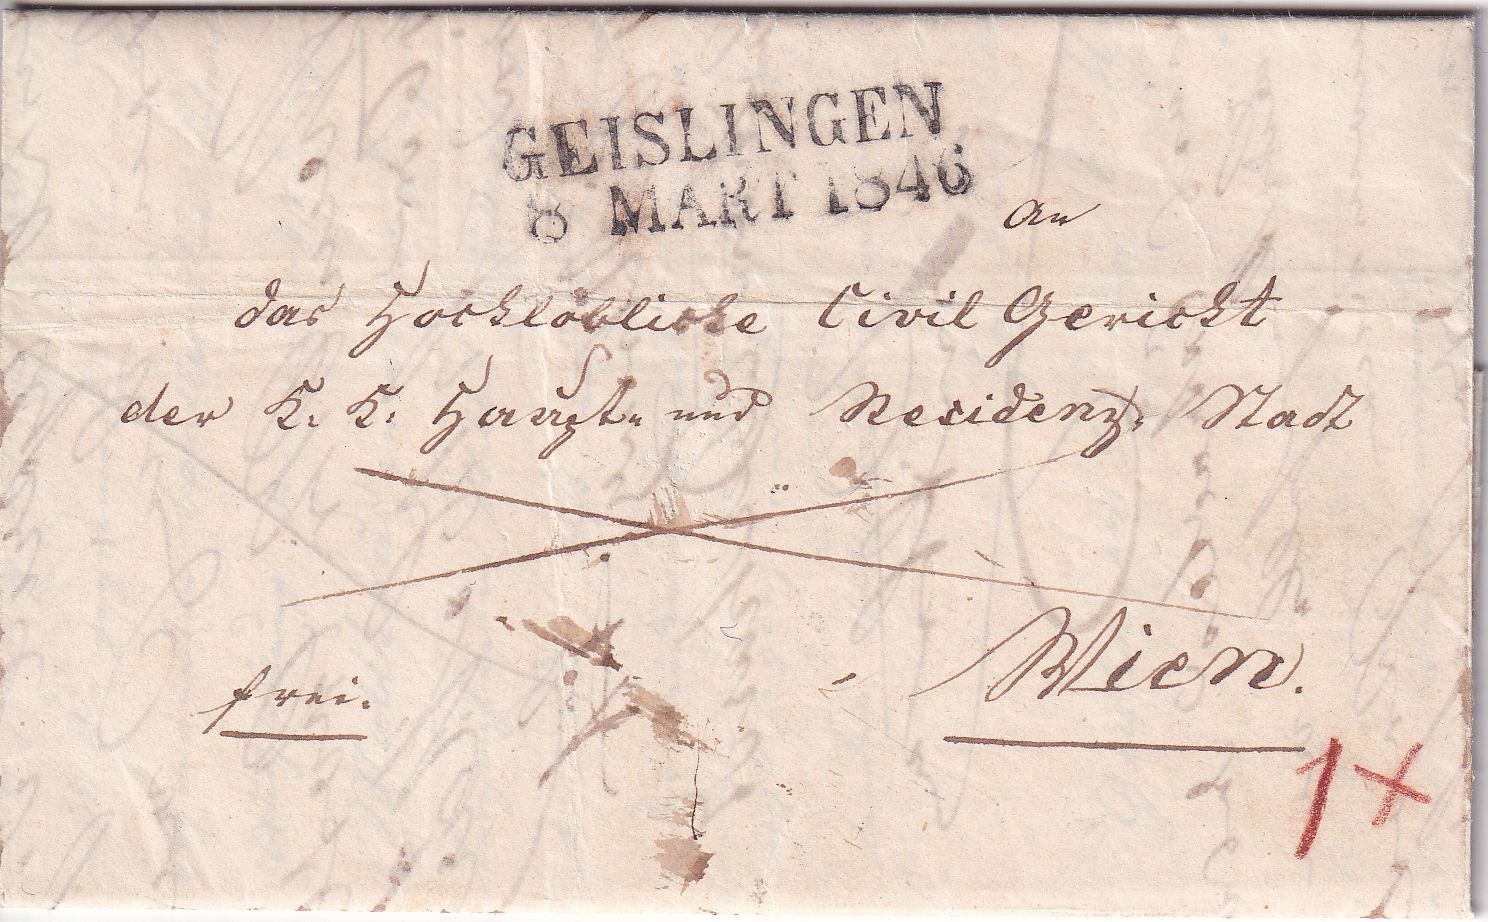 GEISLINGEN
8 MART 1846
An
das Hochlöbliche Civil Gericht
der K. K. Haupt- und Residenz-Stadt
Wien.
frei.
1